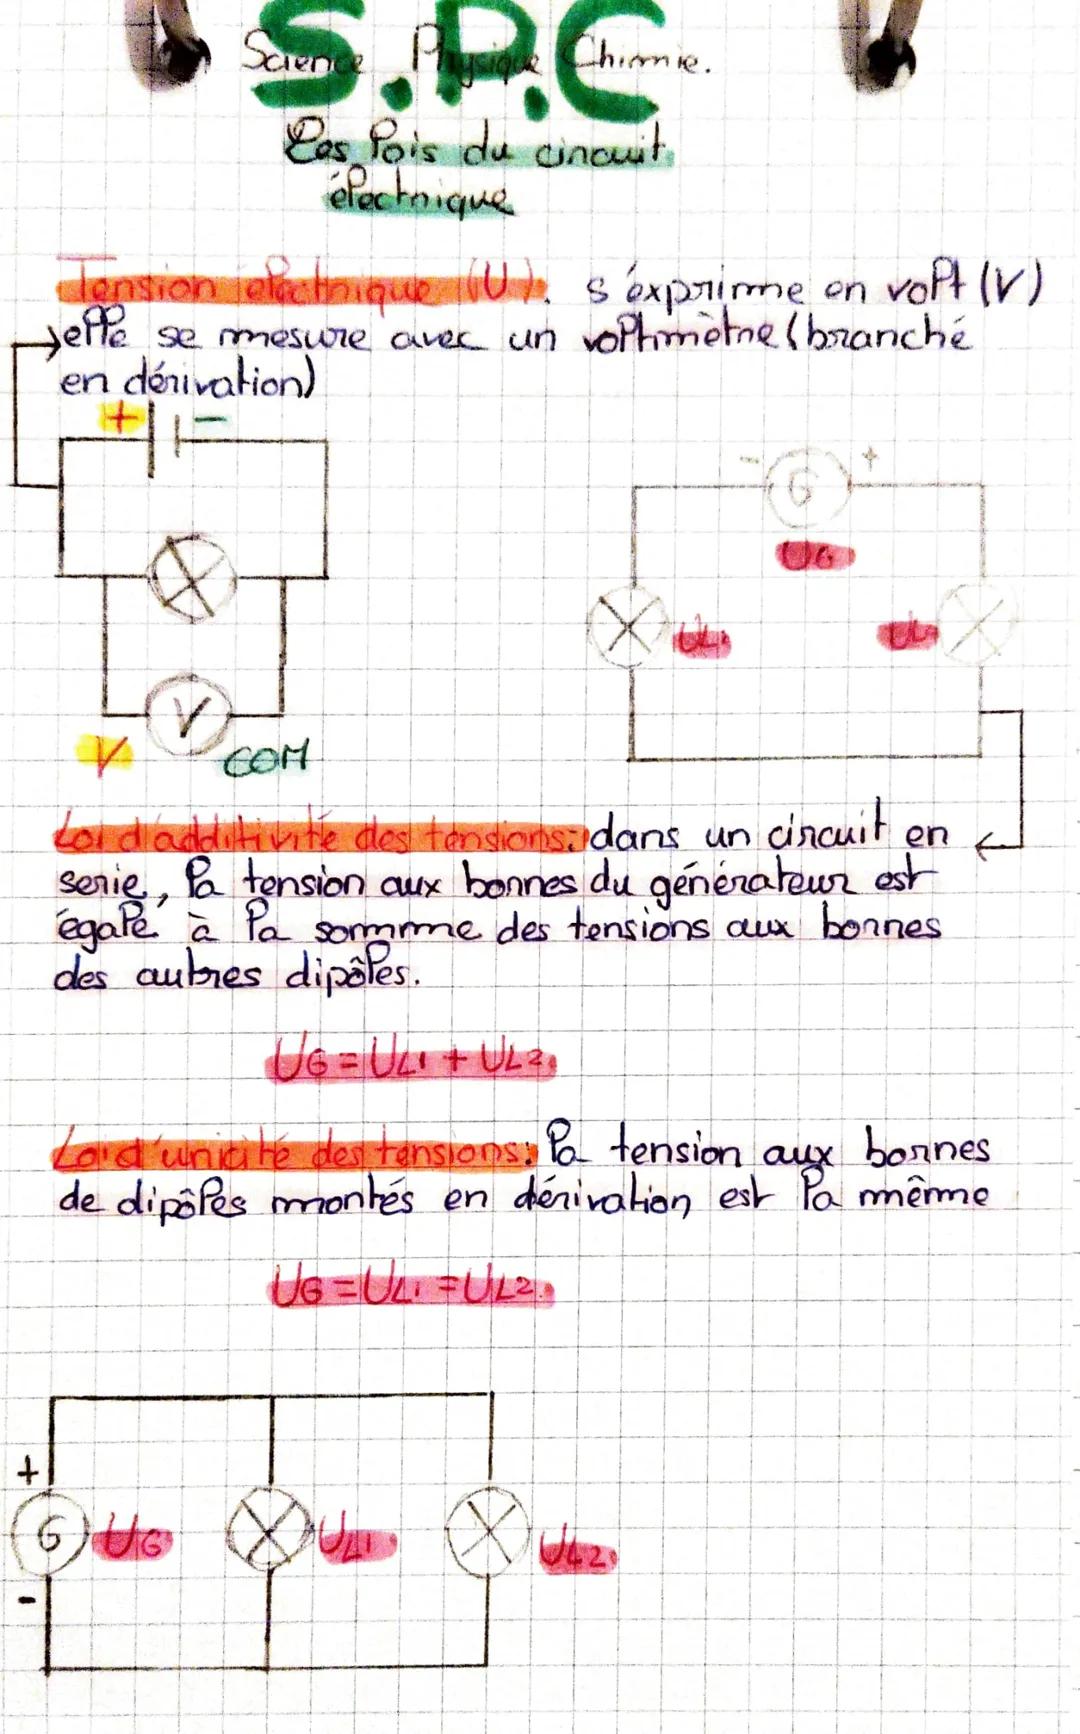 S.P.C
Science Physique Chimie.
Les lois du circuit
électrique
Tension électrique (U). s'exprime en volt (V)
→ elle se mesure avec un voltimètre (branché
en dérivation)
+ -
- G +
UG
UL1 UL
V
V COM
Loi d'additivité des tensions: dans un circuit en
serie, la tension aux bornes du générateur est
égale à la somme des tensions aux bornes
des autres dipôles.
UG = UL1 + UL2.
Loi d'unicité des tensions: la tension aux bornes
de dipôles montés en dérivation est la même
UG = UL1 = UL2.
+
G UG UL1 UL2
-